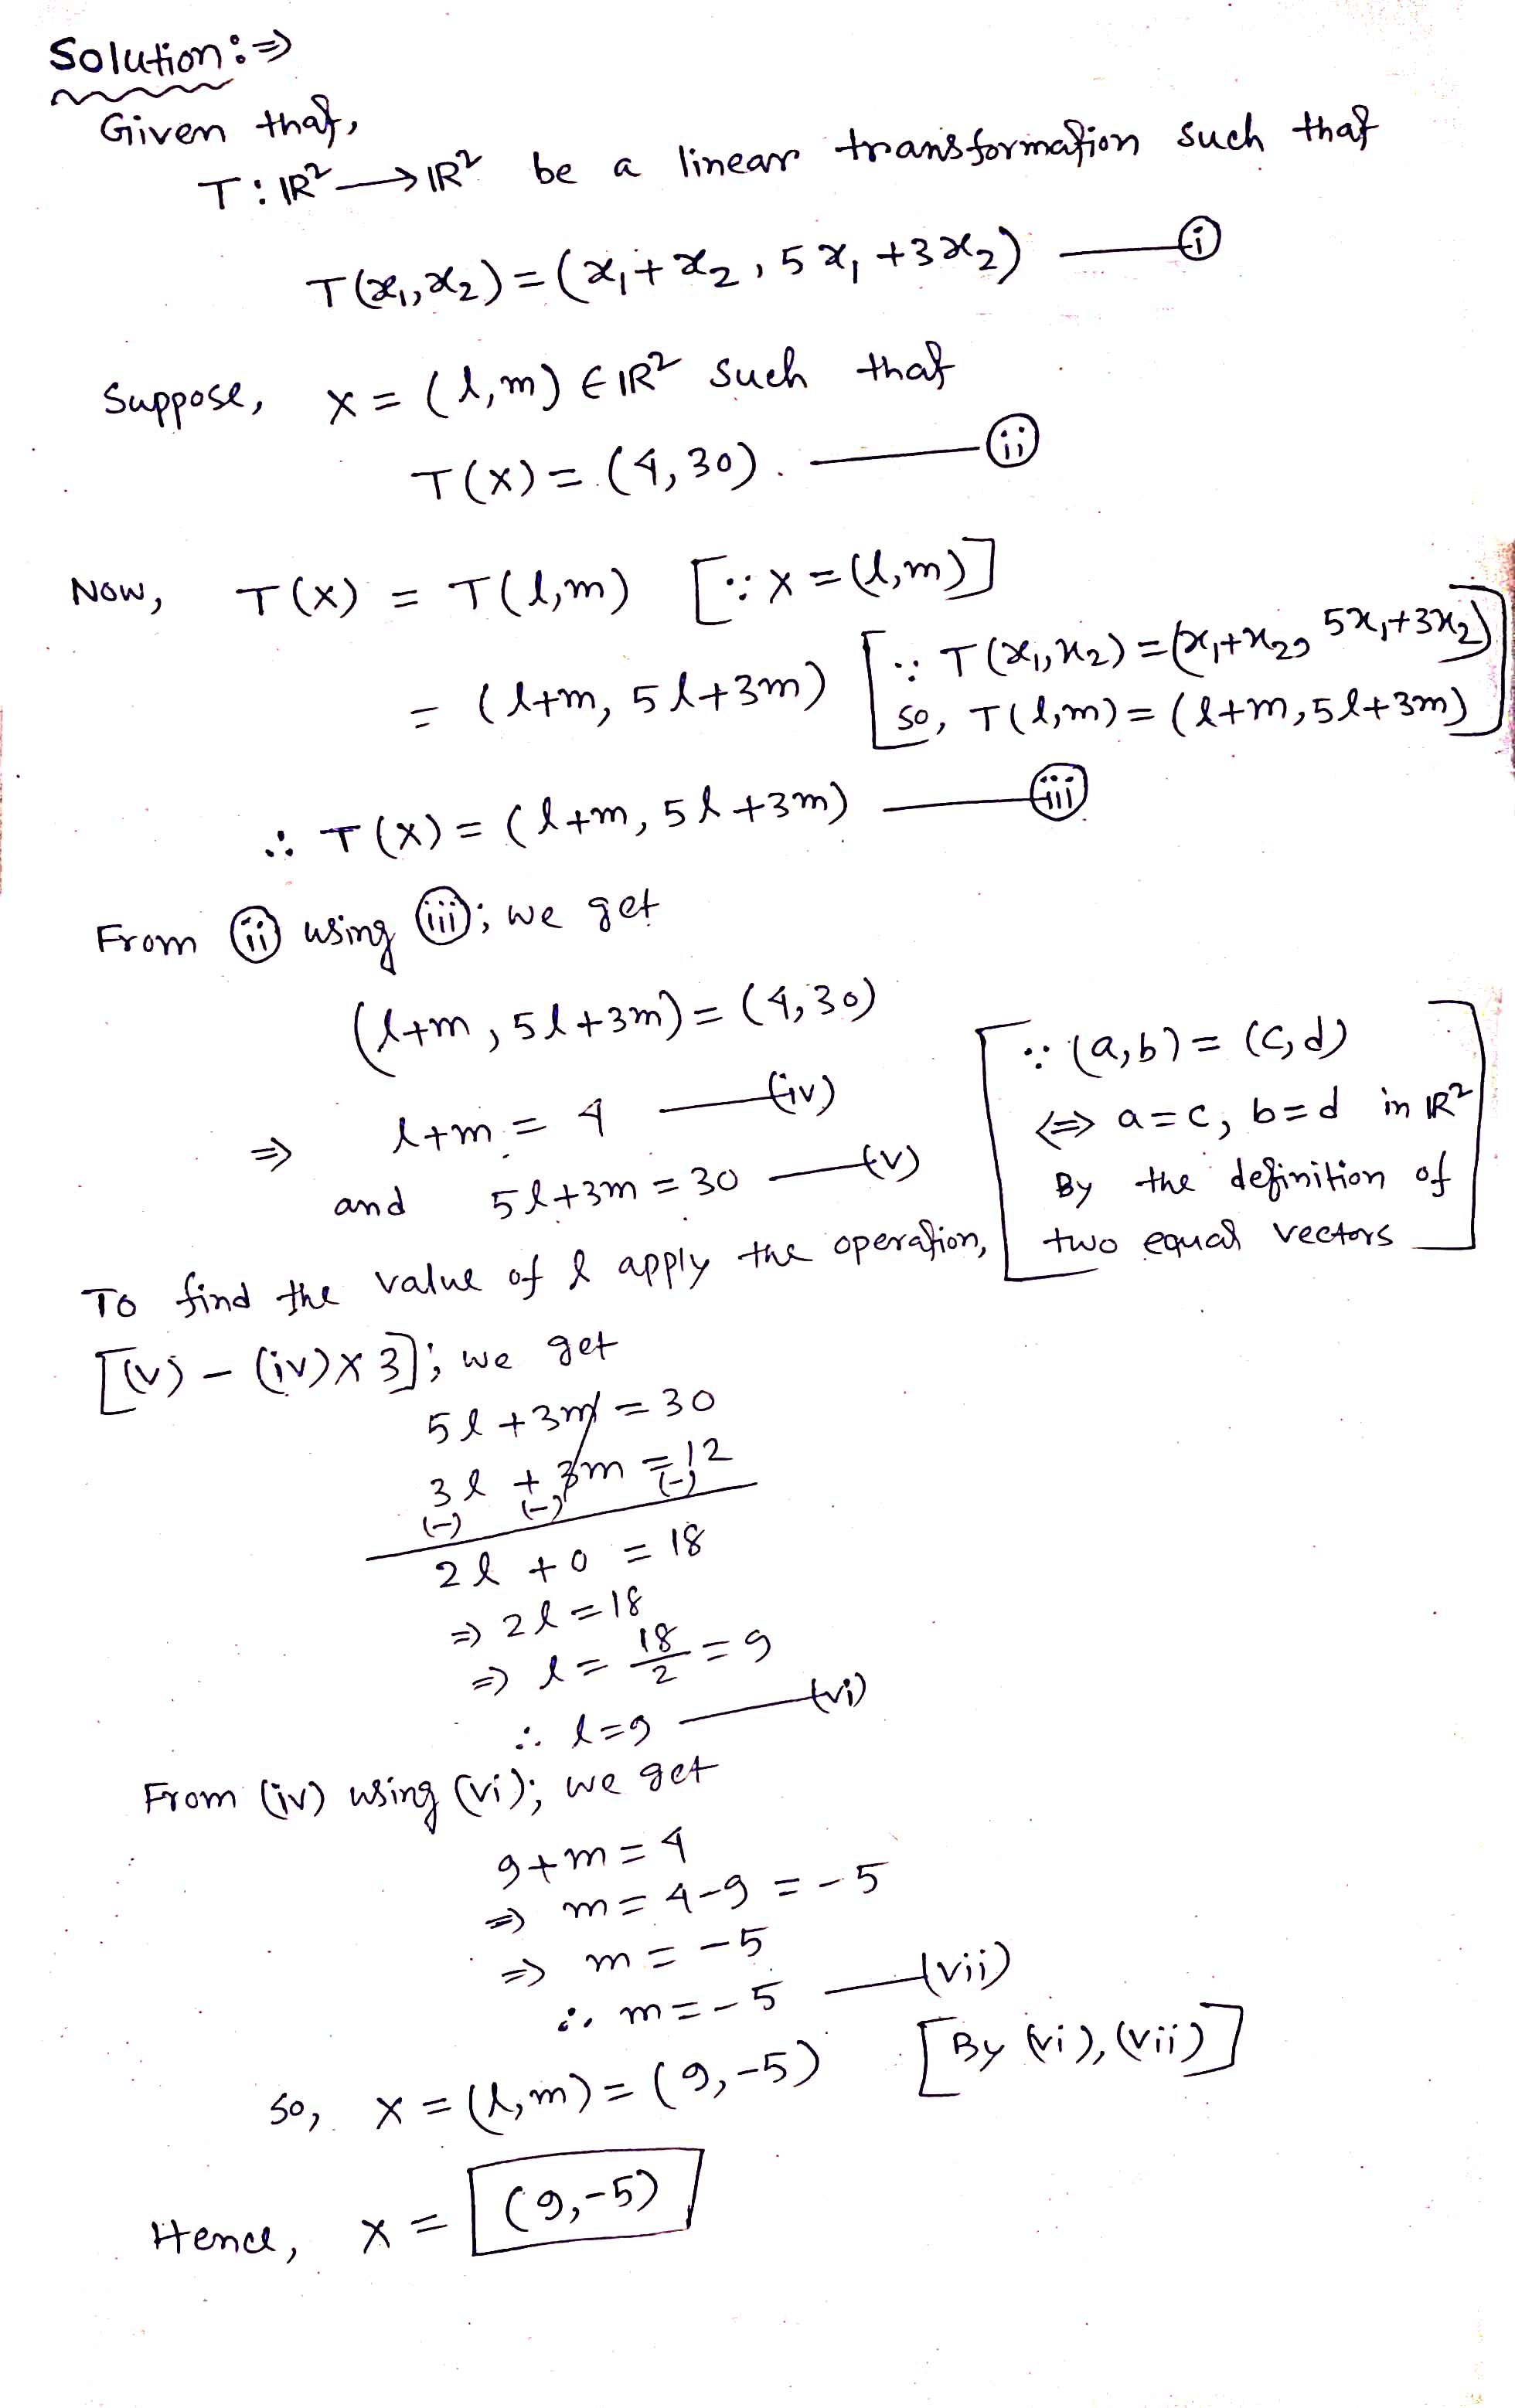 Solution:⇒
Given that,
T: ℝ² → ℝ² be a linear transformation such that
T(x₁,x₂) = (x₁+x₂, 5x₁+3x₂) —— (i)
Suppose, x = (l,m) ∈ ℝ² such that
T(x) = (4,30). —— (ii)
Now, T(x) = T(l,m) [∵ x = (l,m)]
= (l+m, 5l+3m) [∵ T(x₁,x₂) = (x₁+x₂, 5x₁+3x₂)
so, T(l,m) = (l+m, 5l+3m)]
∴ T(x) = (l+m, 5l+3m) —— (iii)
From (ii) using (iii); we get
(l+m, 5l+3m) = (4,30)
⇒ l+m = 4 —— (iv)
and 5l+3m = 30 —— (v)
[∵ (a,b) = (c,d)
⇔ a=c, b=d in ℝ²
By the definition of
two equal vectors]
To find the value of l apply the operation,
[(v) - (iv)×3]; we get
5l + 3m = 30
3l + 3m = 12
(-) (-) (-)
2l + 0 = 18
⇒ 2l = 18
⇒ l = 18/2 = 9
∴ l = 9 —— (vi)
From (iv) using (vi); we get
9+m = 4
⇒ m = 4-9 = -5
⇒ m = -5
∴ m = -5 —— (vii)
so, x = (l,m) = (9,-5) [By (vi), (vii)]
Hence, x = (9,-5)